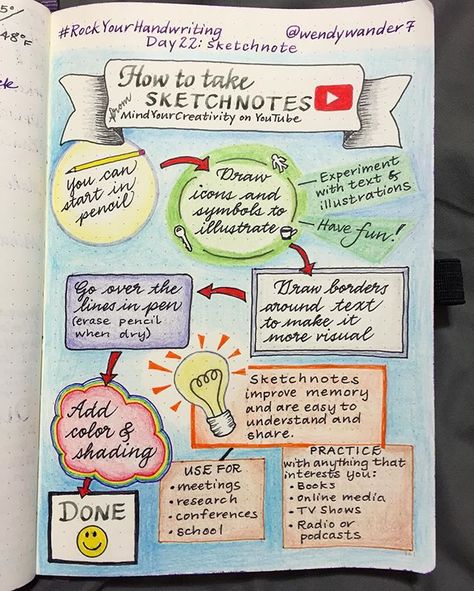 5°
48°F
#RockYourHandwriting
@wendywander7
Day 22: sketchnote
How to take
SKETCHNOTES
from
MindYourCreativity on YouTube
You can
start in
pencil
Draw
icons and
symbols to
illustrate
Experiment
with text &
illustrations
Have fun!
Go over the
lines in pen
(erase pencil
when dry)
Draw borders
around text
to make it
more visual
Add
color &
shading
Sketchnotes
improve memory
and are easy to
understand and
share.
DONE
USE FOR
• meetings
• research
• conferences
• school
PRACTICE
with anything that
interests you:
• Books
• online media
• TV Shows
• Radio or
podcasts